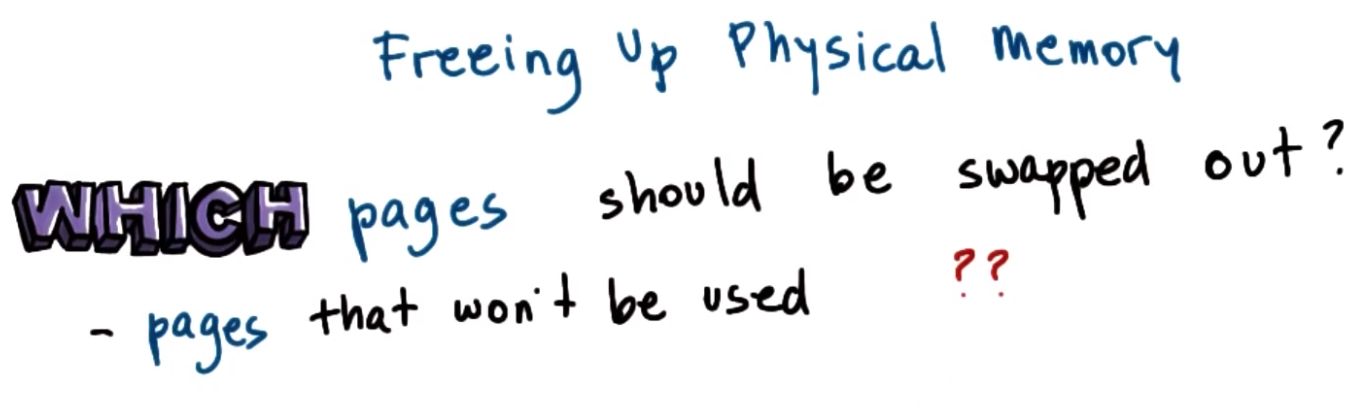 Freeing Up Physical Memory
WHICH pages should be swapped out?
- pages that won't be used ??